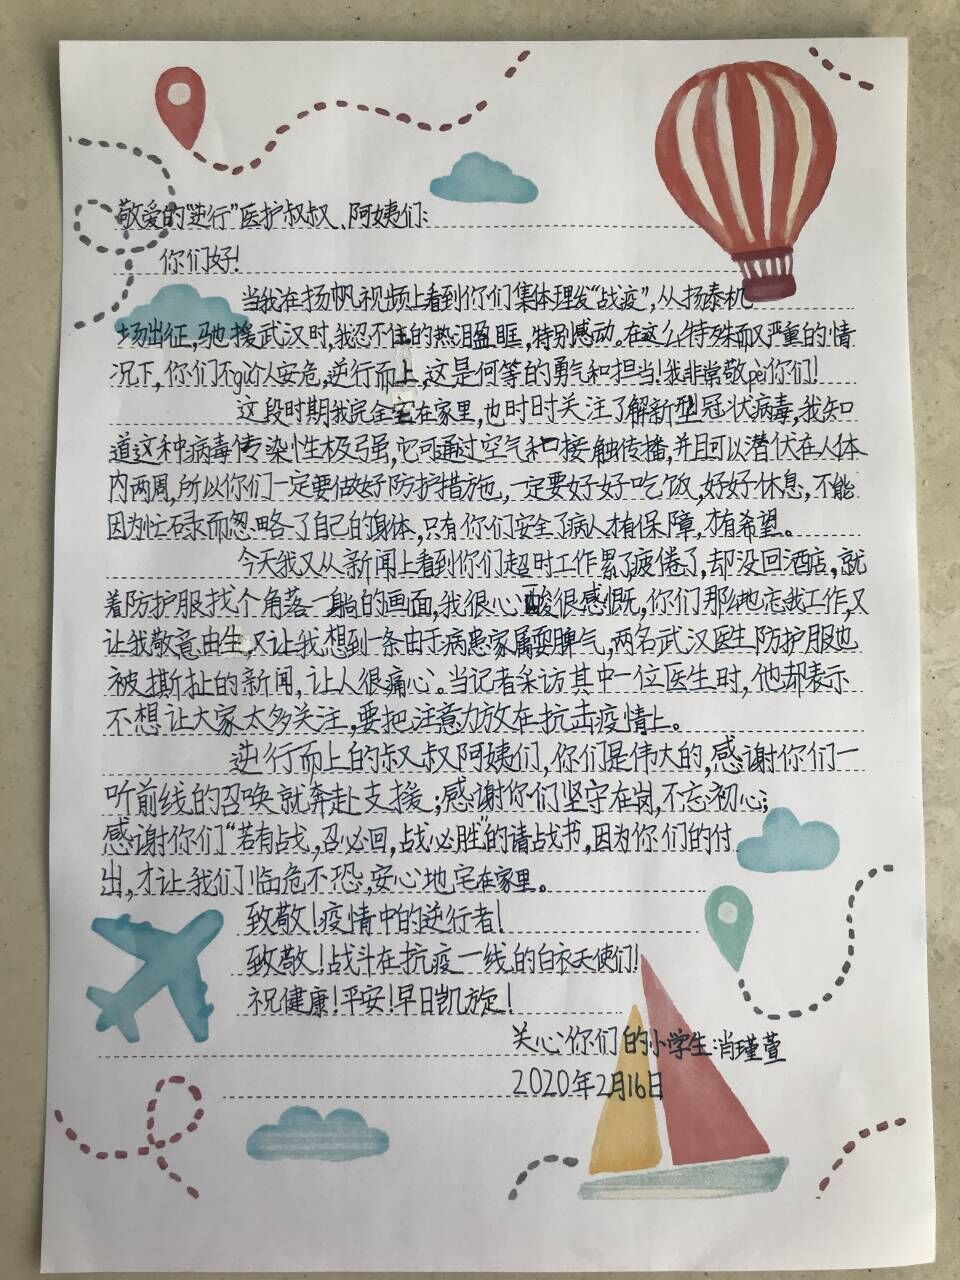 敬爱的“逆行”医护叔叔、阿姨们：
你们好！
当我在扬帆视频上看到你们集体理发“战疫”，从扬泰机
场出征，驰援武汉时，我忍不住的热泪盈眶，特别感动。在这么特殊而又严重的情
况下，你们不gù个人安危，逆行而上，这是何等的勇气和担当！我非常敬pèi你们！
这段时期我完全宅在家里，也时时关注了解新型冠状病毒，我知
道这种病毒传染性极强，它可通过空气和口接触传播，并且可以潜伏在人体
内两周，所以你们一定要做好防护措施，一定要好好吃饭，好好休息，不能
因为忙碌而忽略了自己的身体，只有你们安全了病人才有保障，才有希望。
今天我又从新闻上看到你们超时工作累了疲倦了，却没回酒店，就
着防护服找个角落一躺的画面，我很心酸很感慨，你们那纯地忘我工作，又
让我敬意由生，又让我想到一条由于病患家属耍脾气，两名武汉医生防护服也
被撕扯的新闻，让人很痛心。当记者采访其中一位医生时，他却表示
不想让大家太多关注，要把注意力放在抗击疫情上。
逆行而上的叔叔阿姨们，你们是伟大的，感谢你们一
听前线的召唤就奔赴支援；感谢你们坚守在岗，不忘初心；
感谢你们“若有战，召必回，战必胜”的请战书，因为你们的付
出，才让我们临危不恐，安心地宅在家里。
致敬！疫情中的逆行者！
致敬！战斗在抗疫一线的白衣天使们！
祝健康！平安！早日凯旋！
关心你们的小学生：肖瑾萱
2020年2月16日